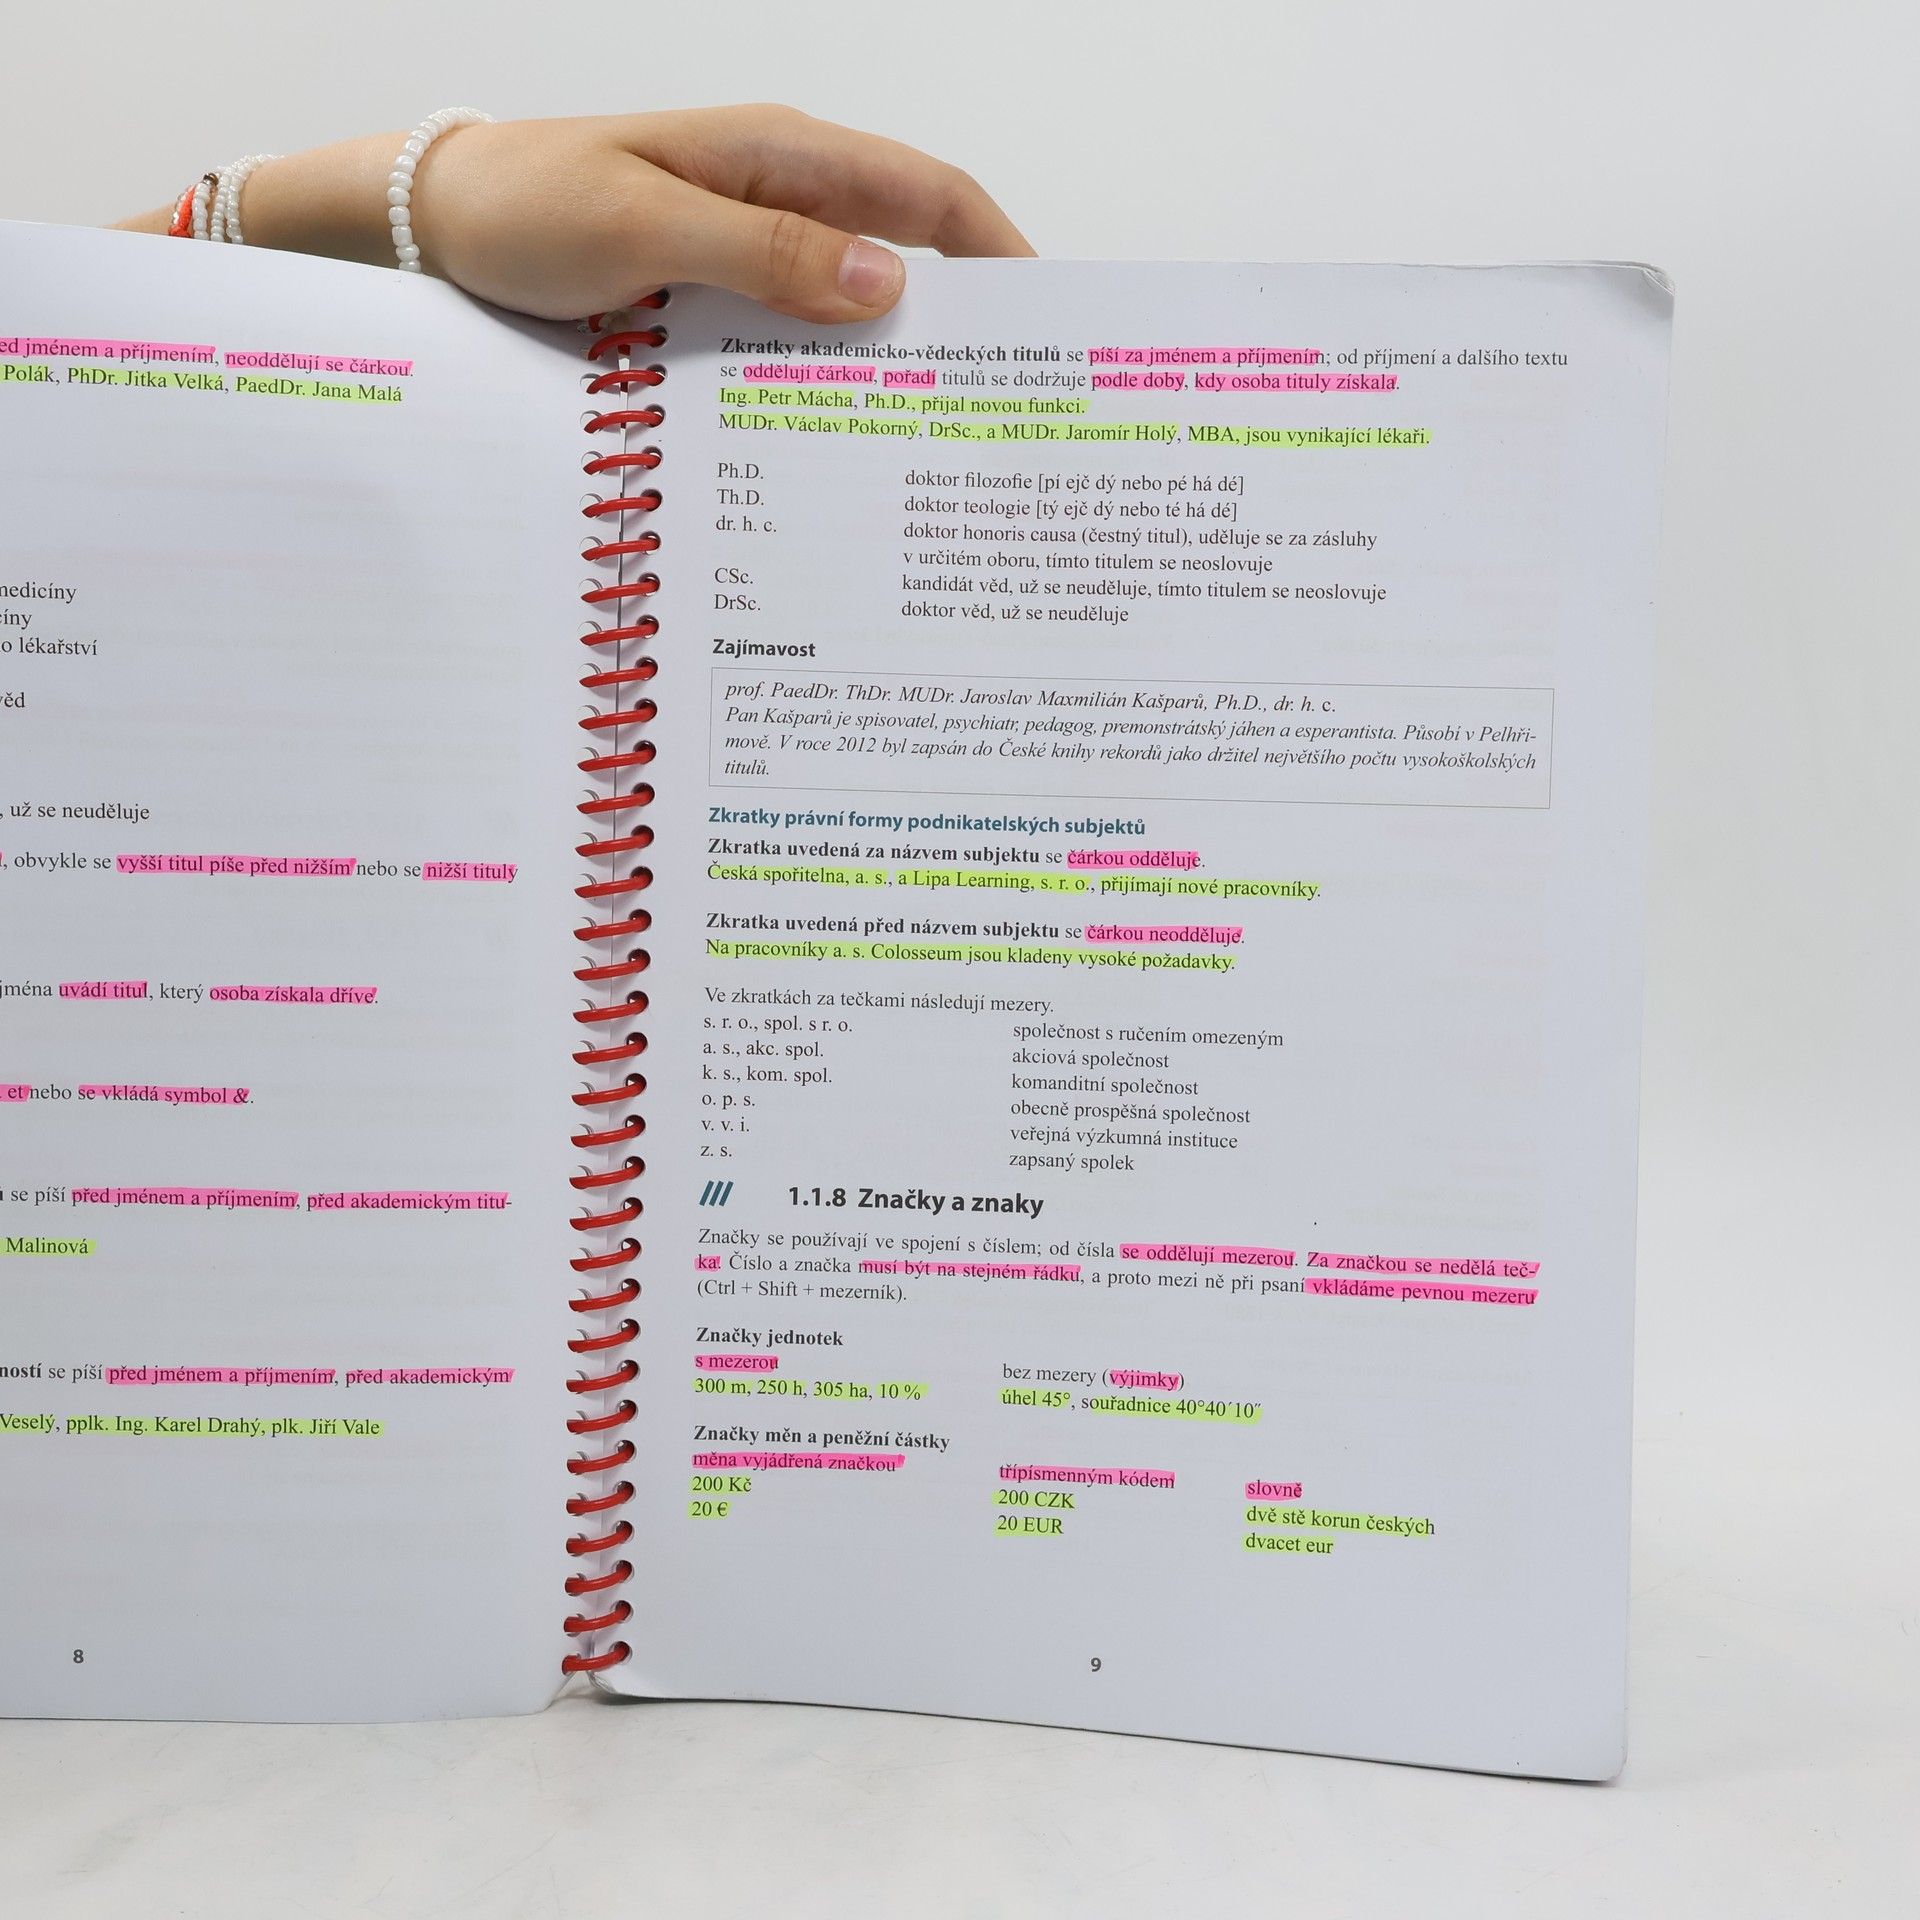 ed jménem a příjmením, neoddělují se čárkou.
Polák, PhDr. Jitka Velká, PaedDr. Jana Malá
medicíny
cíny
o lékařství
věd
, už se neuděluje
, obvykle se vyšší titul píše před nižším nebo se nižší tituly
jména uvádí titul, který osoba získala dříve.
et nebo se vkládá symbol &.
se píší před jménem a příjmením, před akademickým titu-
Malinová
ností se píší před jménem a příjmením, před akademickým
Veselý, pplk. Ing. Karel Drahý, plk. Jiří Vale
8
Zkratky akademicko-vědeckých titulů se píší za jménem a příjmením; od příjmení a dalšího textu
se oddělují čárkou, pořadí titulů se dodržuje podle doby, kdy osoba tituly získala.
Ing. Petr Mácha, Ph.D., přijal novou funkci.
MUDr. Václav Pokorný, DrSc., a MUDr. Jaromír Holý, MBA, jsou vynikající lékaři.
Ph.D. doktor filozofie [pí ejč dý nebo pé há dé]
Th.D. doktor teologie [tý ejč dý nebo té há dé]
dr. h. c. doktor honoris causa (čestný titul), uděluje se za zásluhy
v určitém oboru, tímto titulem se neoslovuje
CSc. kandidát věd, už se neuděluje, tímto titulem se neoslovuje
DrSc. doktor věd, už se neuděluje
Zajímavost
prof. PaedDr. ThDr. MUDr. Jaroslav Maxmilián Kašparů, Ph.D., dr. h. c.
Pan Kašparů je spisovatel, psychiatr, pedagog, premonstrátský jáhen a esperantista. Působí v Pelhři-
mově. V roce 2012 byl zapsán do České knihy rekordů jako držitel největšího počtu vysokoškolských
titulů.
Zkratky právní formy podnikatelských subjektů
Zkratka uvedená za názvem subjektu se čárkou odděluje.
Česká spořitelna, a. s., a Lipa Learning, s. r. o., přijímají nové pracovníky.
Zkratka uvedená před názvem subjektu se čárkou neodděluje.
Na pracovníky a. s. Colosseum jsou kladeny vysoké požadavky.
Ve zkratkách za tečkami následují mezery.
s. r. o., spol. s r. o. společnost s ručením omezeným
a. s., akc. spol. akciová společnost
k. s., kom. spol. komanditní společnost
o. p. s. obecně prospěšná společnost
v. v. i. veřejná výzkumná instituce
z. s. zapsaný spolek
/// 1.1.8 Značky a znaky
Značky se používají ve spojení s číslem; od čísla se oddělují mezerou. Za značkou se nedělá teč-
ka. Číslo a značka musí být na stejném řádku, a proto mezi ně při psaní vkládáme pevnou mezeru
(Ctrl + Shift + mezerník).
Značky jednotek
s mezerou bez mezery (výjimky)
300 m, 250 h, 305 ha, 10 % úhel 45°, souřadnice 40°40´10˝
Značky měn a peněžní částky
měna vyjádřená značkou třípísmenným kódem slovně
200 Kč 200 CZK dvě stě korun českých
20 € 20 EUR dvacet eur
9